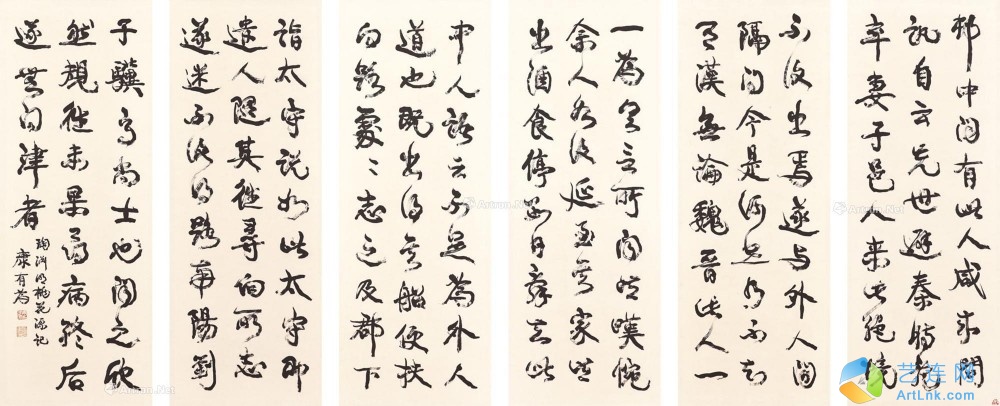 邨中聞有此人咸來問
訊自云先世避秦時亂
率妻子邑人來此絕境
不復出焉遂與外人間
隔問今是何世乃不知
有漢無論魏晉此人一
一為具言所聞皆嘆惋
余人各復延至其家皆
出酒食停數日辭去此
中人語云不足為外人
道也既出得其船便扶
向路處〻志之及郡下
詣太守說如此太守即
遣人隨其往尋向所志
遂迷不復得路南陽劉
子驥高尚士也聞之欣
然親往未果尋病終后
遂無問津者
陶淵明桃花源記
康有為
艺连网
ArtLnk.com
Artron.Net